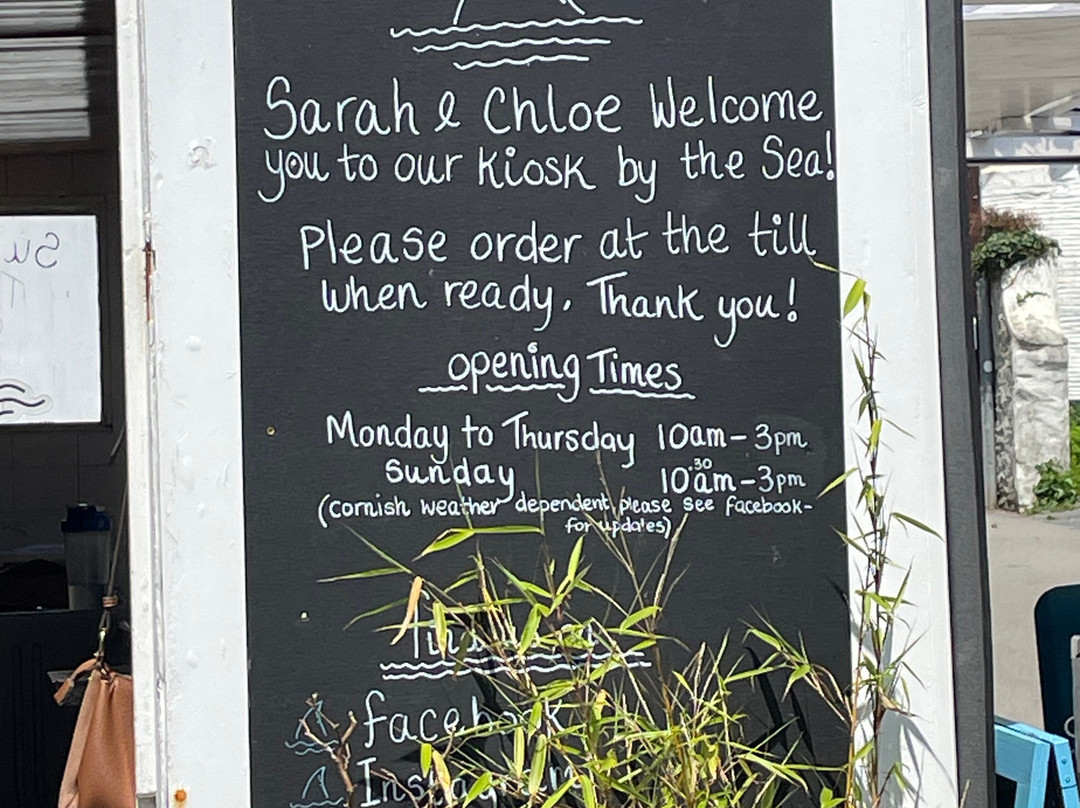 Sarah & Chloe Welcome
you to our Kiosk by the Sea!
Please order at the till
When ready. Thank you!
opening Times
Monday to Thursday 10am - 3pm
Sunday 10.30am - 3pm
(Cornish Weather dependent please see facebook-
for updates)
facebook
Instagram
Su